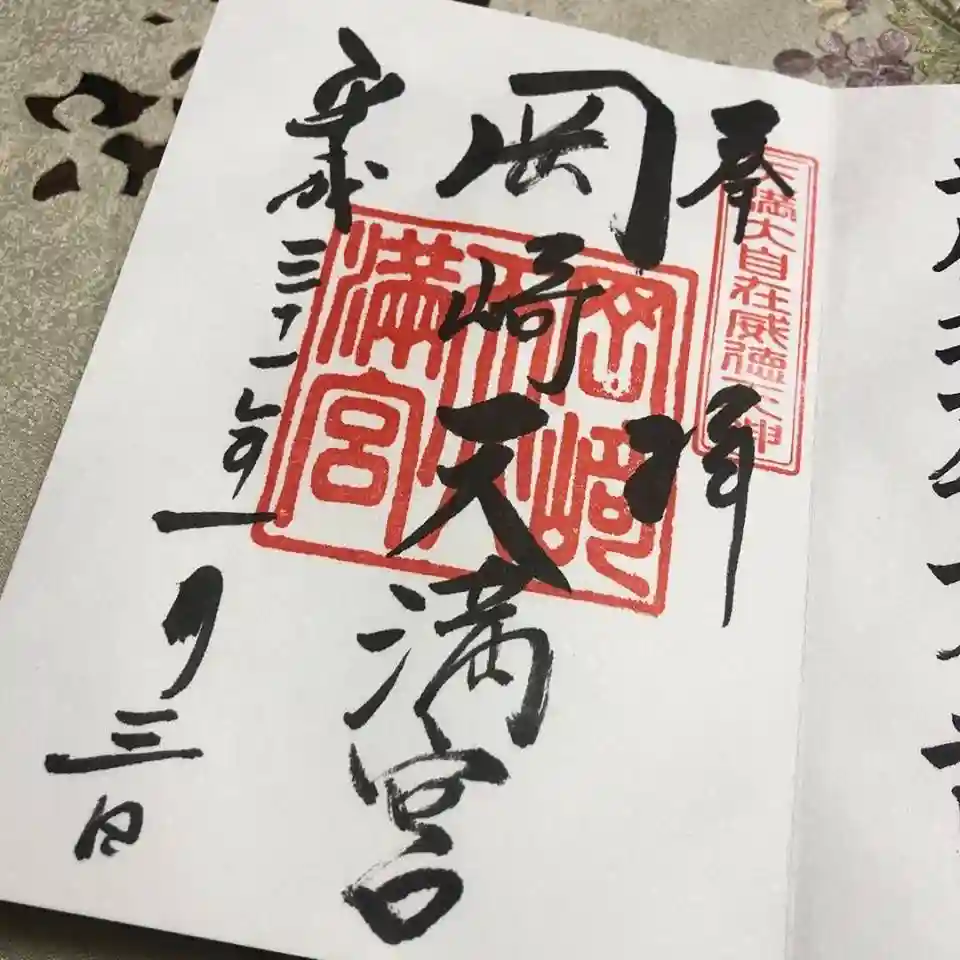 奉拝
天満大自在威徳天神
岡崎天満宮
岡崎天満宮
平成三十一年一月三日